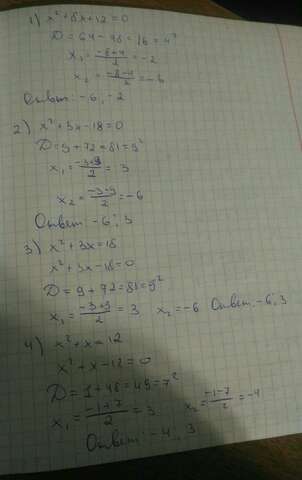 1) x² + 8x + 12 = 0
D = 64 - 48 = 16 = 4²
x₁ = (-8+4)/2 = -2
x₂ = (-8-4)/2 = -6
Ответ: -6, -2
2) x² + 3x - 18 = 0
D = 9 + 72 = 81 = 9²
x₁ = (-3+9)/2 = 3
x₂ = (-3-9)/2 = -6
Ответ: -6; 3
3) x² + 3x = 18
x² + 3x - 18 = 0
D = 9 + 72 = 81 = 9²
x₁ = (-3+9)/2 = 3 x₂ = -6 Ответ: -6; 3
4) x² + x = 12
x² + x - 12 = 0
D = 1 + 48 = 49 = 7²
x₁ = (-1+7)/2 = 3 x₂ = (-1-7)/2 = -4
Ответ: -4; 3